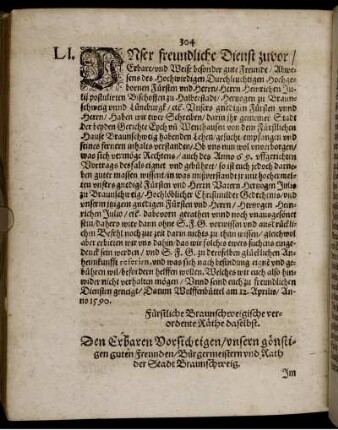 304
L l.
UNser freundliche Dienst zuvor /
Erbare / und Weise besonder gute Freunde / Abwe-
sens des Hochwirdigen Durchleuchtigen Hochge-
bornen Fürsten und Herrn / Herrn Heinrichen Ju-
lij postulirten Bischoffen zu Halberstadt / Hertzogen zu Braun-
schweig unnd Lüneburgk / etc. Unsers gnedigen Fürsten unnd
Herrn / Haben wir ewer Schreiben / darin ihr gemeiner Stadt
der beyden Gerichte Eych und Wentthausen von dem Fürstlichen
Hause Braunschweig habenden Lehen gesucht / empfangen und
seines fernern inhalts verstanden / Ob uns nun wol unverborgen /
was sich vermöge Rechtens / auch des Anno 69. uffgerichten
Vortrags desfals eignet und gebühret / so ist euch jedoch darne-
ben guter massen wissent / in was mißverstande jr mit hochermel-
ten unsers gnedigē Fürsten und Herrn Vatern Hertzogen Julio
zu Braunschweig / Hochlöblicher Christmilder Gedechtniß / und
unserm jtzigem gnedigen Fürsten und Herrn / Hertzogen Hein-
richen Julio / etc. dahevorn gerathen unnd noch unausgesönet
sein / dahero wir dann ohne S. F. G. vorwissen und außdrückli-
chen Befehl noch zur zeit darin nichts zu thun wissen / gleichwol
aber erbieten wir uns dahin / das wir solchs ewers suchens einge-
denck sein werden / und S. F. G. zu derselben glücklichen An-
heimkunfft referirn, und was sich nach befindung eignē und ge-
bühren wil / befordern helffen wollen. Welches wir euch also hin-
wider nicht verhalten mögen / Unnd seind euch zu freundlichen
Diensten geneigt / Datum Wolffenbüttel am 12. Aprilis / An-
no 1590.
Fürstliche Braunschweigische ver-
ordente Räthe daselbst.
Den Erbaren Vorsichtigen / unsern gönsti-
gen guten Freunden / Bürgermeistern und Rath
der Stadt Braunschweig.
Im